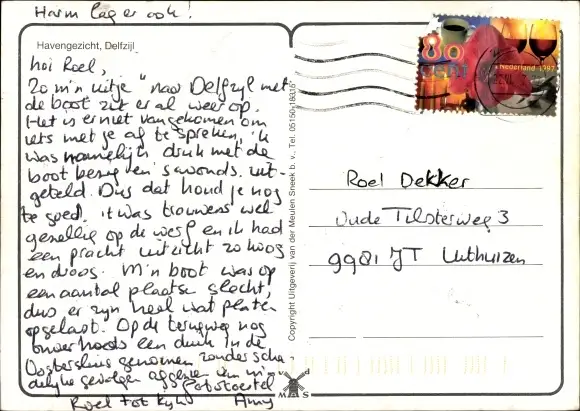 Harm lag er ook!
Havengezicht, Delfzijl
80
cent
Nederland 1997
Hoi Roel,
Zo m'n uitje "naar Delfzijl met
de boot zit er al weer op.
Het is er niet van gekomen om
iets met je af te spreken, 'k
was namelijk druk met de
boot bezig en 's avonds. uit-
geteld. Dus dat houd je nog
te goed. 't was trouwens wel
gezellig op de werf en ik had
een pracht uitzicht zo hoog
en droog. M'n boot was op
een aantal plaatse slecht,
dus er zijn heel wat platen
opgelapt. Op de terugweg nog
onverhoods een duik in de
Oostersluis genomen zonder scha-
delijke gevolgen afgezien van m'n
fototoestel
Roel tot kijk Amy
Copyright Uitgeverij van der Meulen Sneek b. v., Tel. 05150-18316
Roel Dekker
Oude Tilsterweg 3
9981 JT Uithuizen
M S